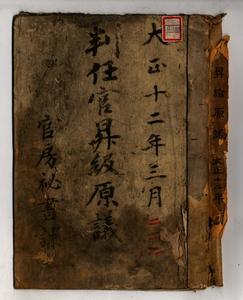 大正十二年三月
判任官昇級原議
官房祕書課
昇級原議
大正十二年